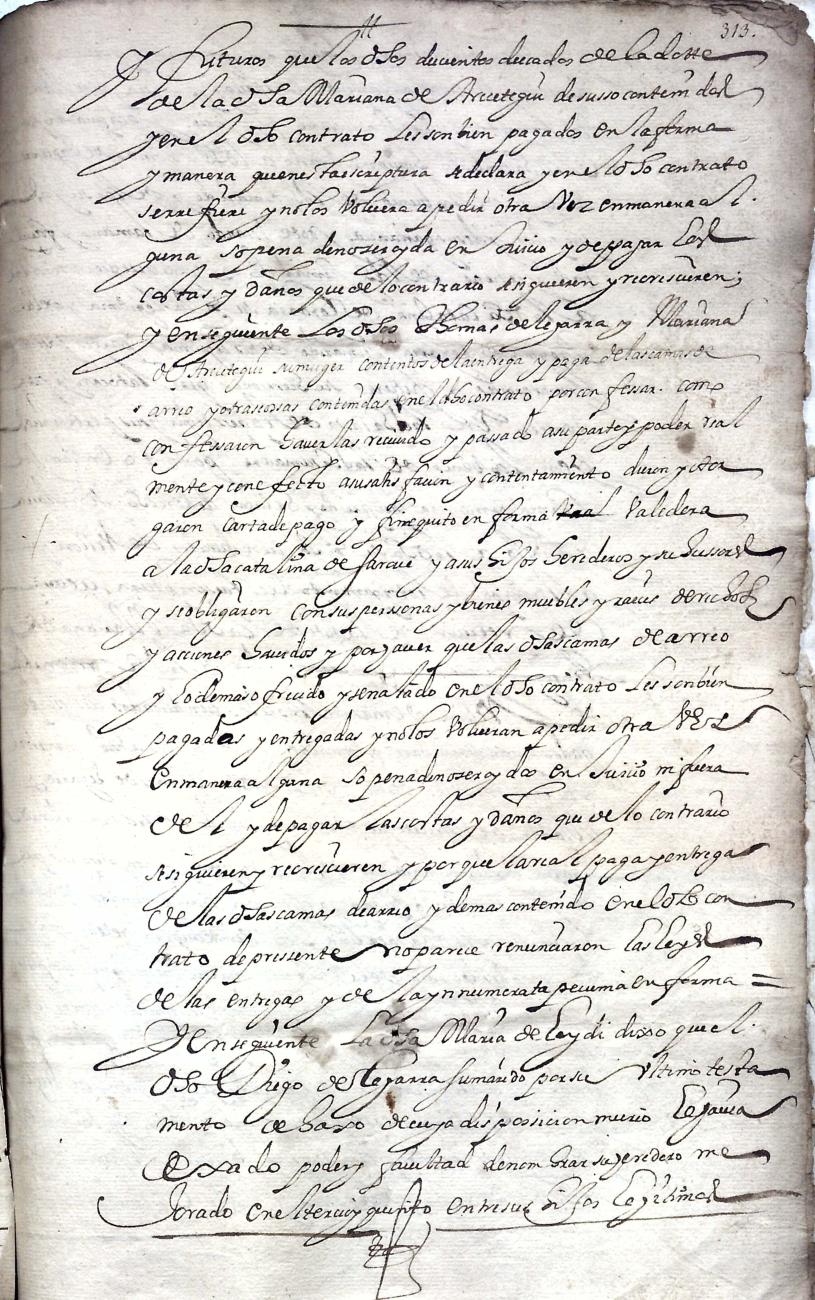 313.
Y futuros que los dhos ducientos ducados de la dotte
de la dha Mariana de Arteteguí de susso contenidos
y en el dho contrato les son bien pagados en la forma
y manera que en esta escriptura se declara y en el dho contrato
se rrefiere y no los volvera a pedir otra vez en manera al
guna so pena de no ser oyda en Juicio y de pagar las
costas y daños que de lo contrario se siguieren y recrescieren;
y en seguiente Los dhos Thomas de legarra y Mariana
de su muger contentos de la entrega y paga de las camas de
arreo y otras cosas contenidas en el dho contrato por confessar como
confessaron haverlas recivido y passado a su parte y poder real
mente y con effecto a su satisfacion y contentamiento dieron y otor
garon carta de pago y finiquito en forma valedera
a la dha catalina de y a sus hijos herederos y subcessores
y se obligaron con sus perssonas y bienes muebles y raices derechos
y acciones havidos y por haver que las dhas camas de arreo
y lo demas ofrecido y señalado en el dho contrato les son bien
pagadas y entregadas y no los volveran a pedir otra vez
en manera alguna so pena de no ser oydos en Juicio ni fuera
de l y de pagar las costas y daños que de lo contrario
se siguieren y recrescieren y porque la real paga y entrega
de las dhas camas de arreo y demas contenido en el dho con
trato de pressente no parece renunciaron las leyes
de las entregas y de la ynnumerata pecunia en forma =
Y en seguiente La dha Maria de Leydi dixo que el
dho Diego de legarra su marido por su ultimo testa
mento de baxo de cuya disposicion murio le havia
dexado poder y facultad de nombrar su heredero me
Jorado en el tercio y quinto entre sus hijos legitimos